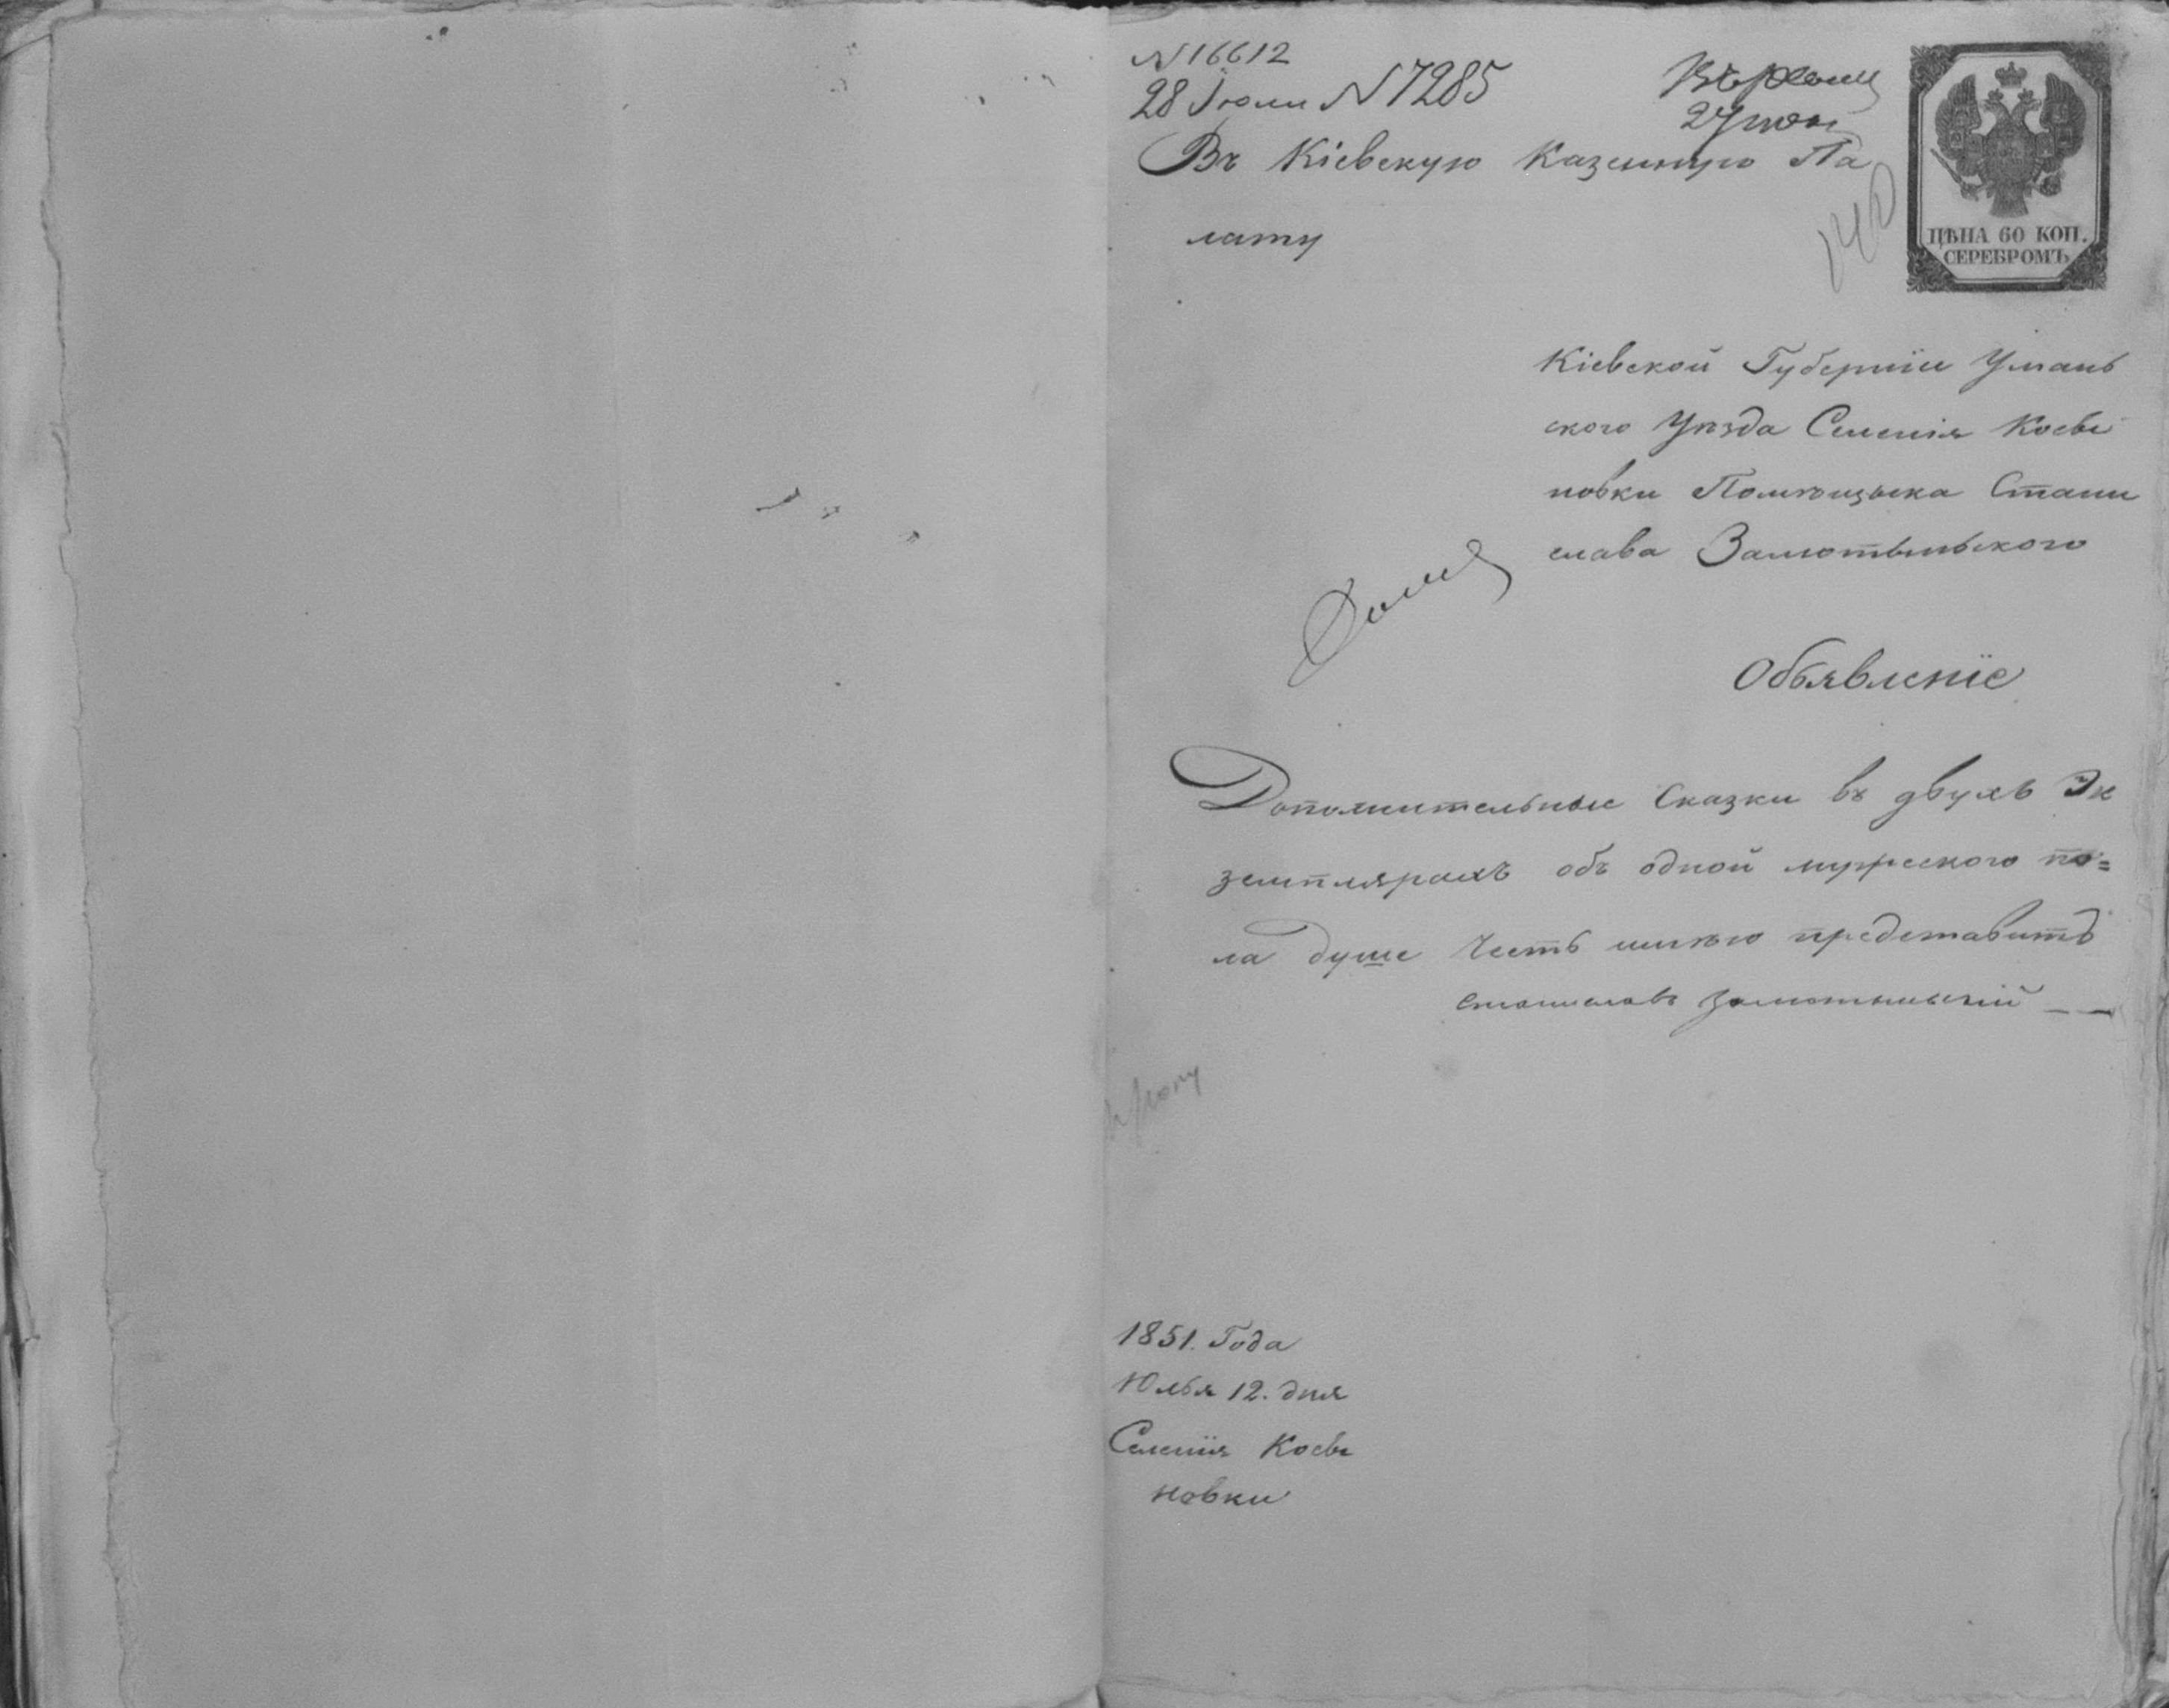 N 16612
28 Іюли N 7285
27 июл
Въ Кіевскую Казенную Па
лату
ЦѢНА 60 КОП.
СЕРЕБРОМЪ
Кіевской Губерніи Умань
ского Уѣзда Селенія Коеве
новки Помѣщыка Стани
слава Замотыльского
Объявленіе
Дополнительные Сказки въ двухъ Эк
земплярахъ объ одной мужеского по=
ла душе Честь имѣю представить
Станиславъ Замотыльскій
1851. Года
Юлья 12. дня
Селенія Коеве
новки